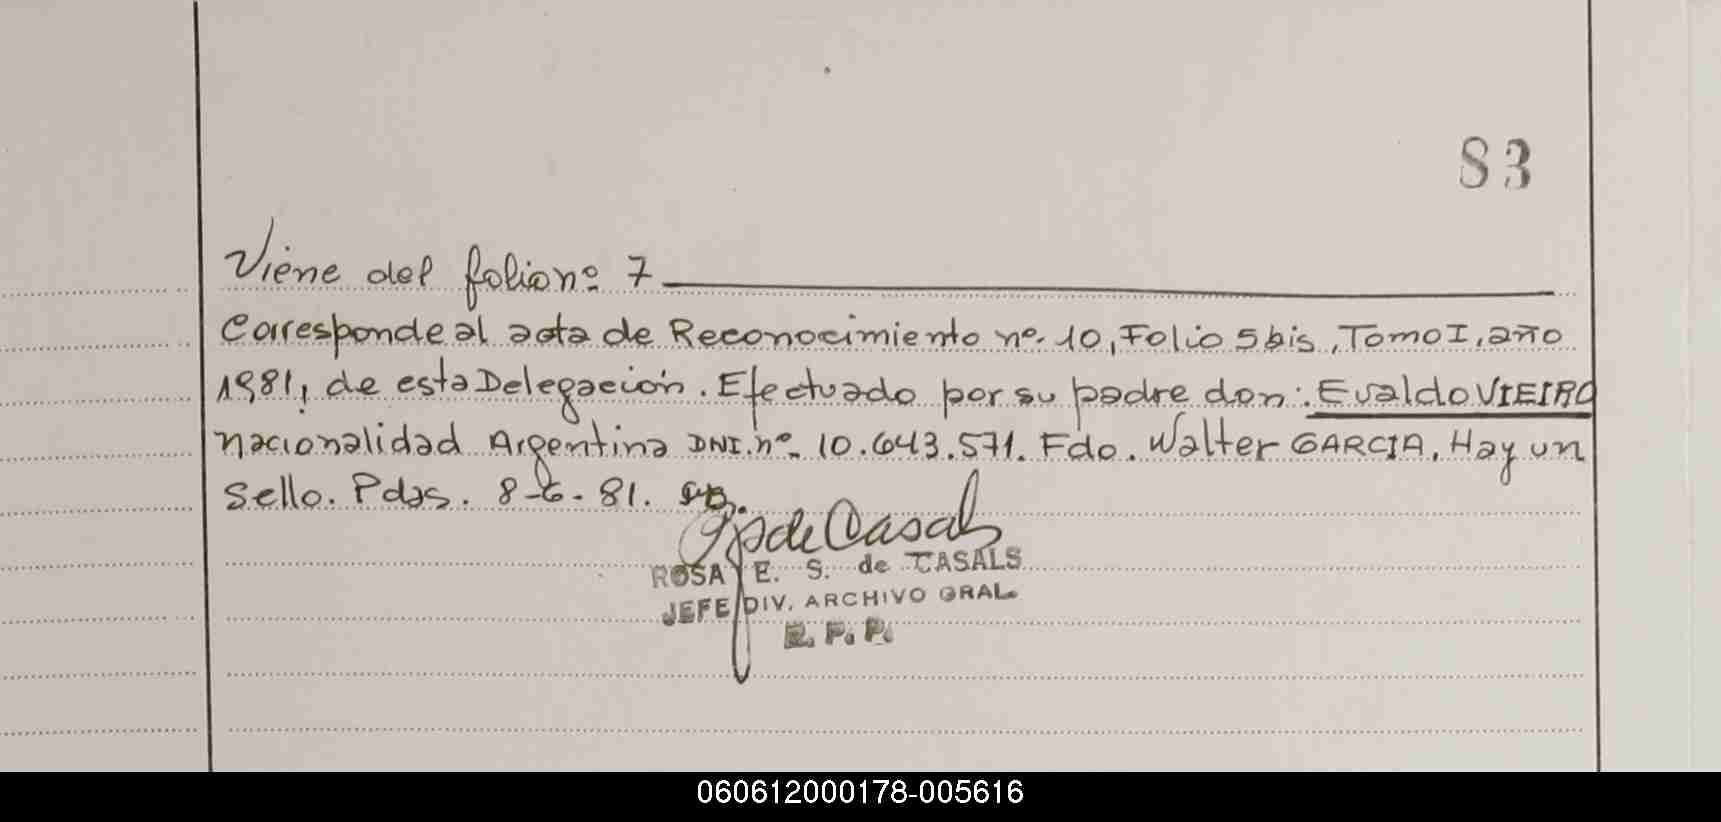 83
Viene del folio nº 7
Corresponde al acta de Reconocimiento nº. 10, Folio 5 bis, Tomo I, año
1981, de esta Delegación. Efectuado por su padre don: Evaldo VIEIRO
nacionalidad Argentina DNI. nº. 10.643.571. Fdo. Walter GARCIA. Hay un
sello. Pdas. 8-6-81.
de Casals
ROSA E. S. de CASALS
JEFE DIV. ARCHIVO GRAL.
R. P. P.
060612000178-005616